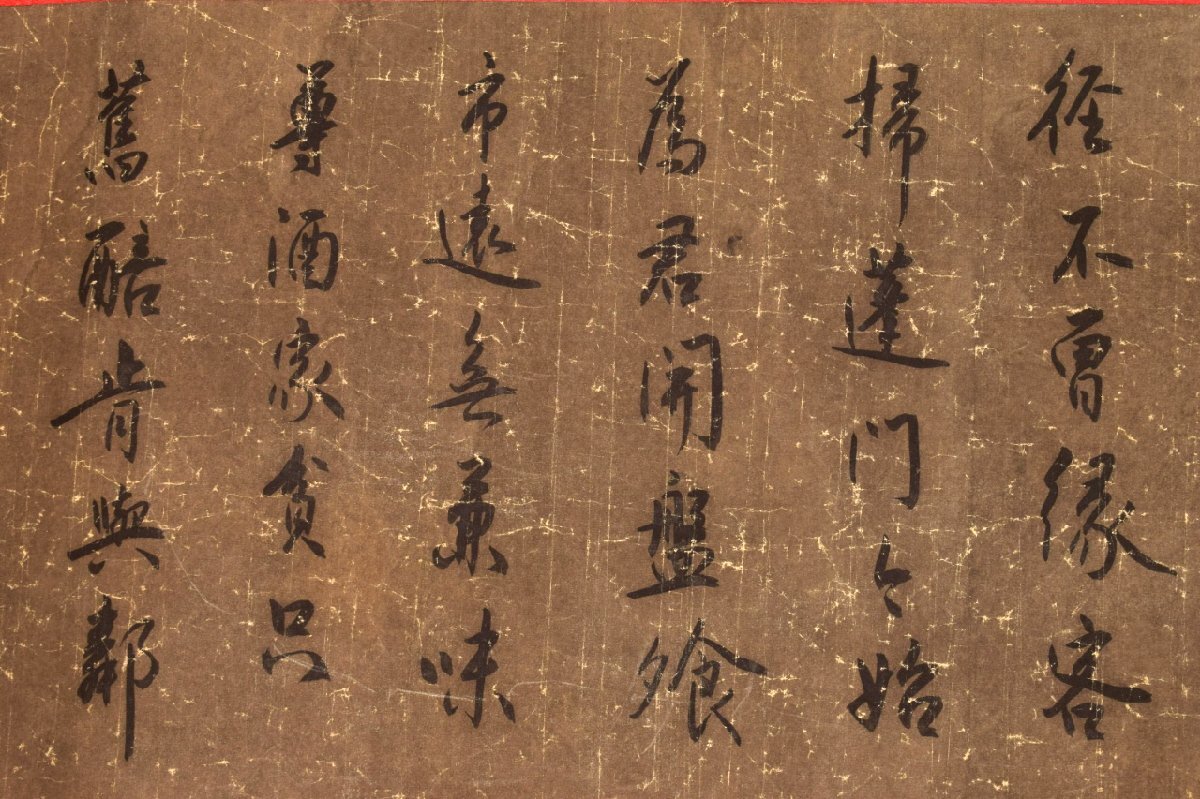 徑不曾緣客
掃蓬門今始
為君開盤飧
市遠無兼味
尊酒家貧只
舊醅肯與鄰